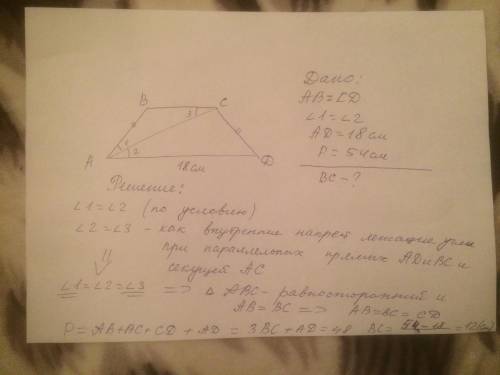 Дано:
AB=CD
∠1=∠2
AD=18см
P=54см
BC-?
B
C
3
1
2
A
18см
D
Решение:
∠1=∠2 (по условию)
∠2=∠3 - как внутренние накрест лежащие углы
при параллельных прямых AD и BC и
секущей AC
∠1=∠2=∠3 => △ ABC- равносторонний и
AB=BC => AB=BC=CD
P=AB+BC+CD+AD=3BC+AD=48 BC= 54-18 =12(см)